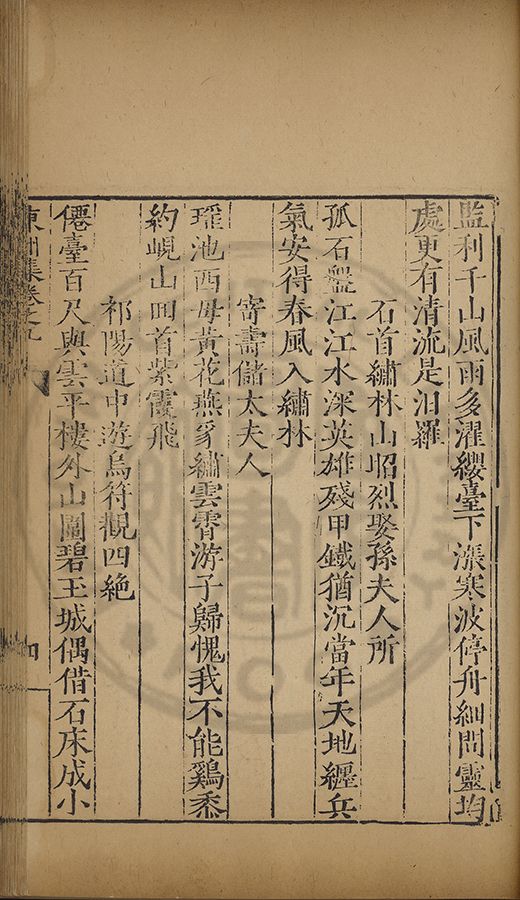 監利千山風雨多濯纓臺下漲寒波停舟細問靈均
處更有清流是汨羅
石首繡林山昭烈娶孫夫人所
孤石盤江江水深英雄殘甲鐵猶沉當年天地纏兵
氣安得春風入繡林
寄壽儲太夫人
瑤池西母黃花燕豸繡雲霄游子歸愧我不能鷄黍
約峴山回首紫霞飛
祁陽道中遊烏符觀四絶
僊臺百尺與雲平樓外山圍碧玉城偶借石床成小
東川集卷之九
四